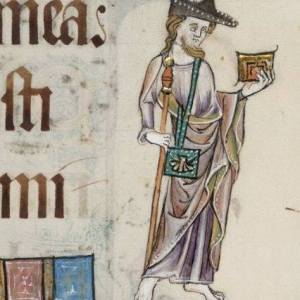 meas
sti
mi